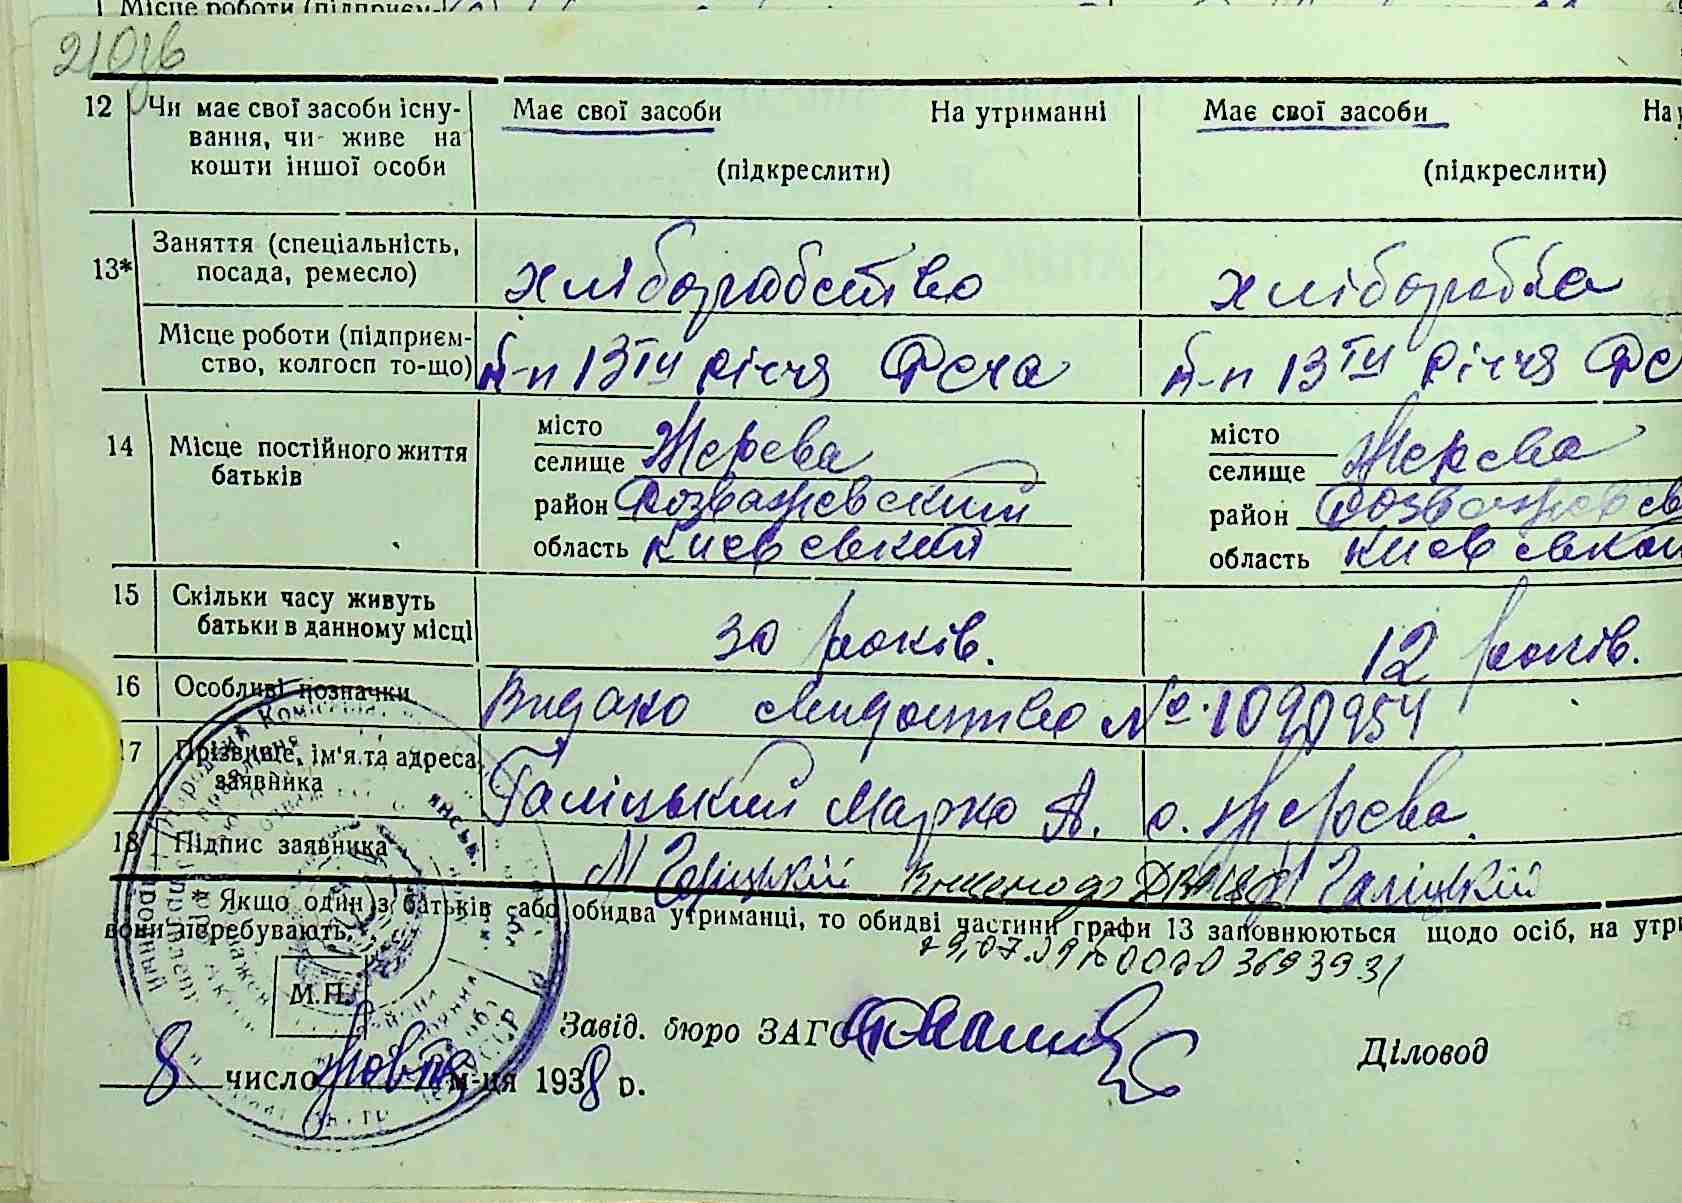 Місце роботи (підприєм-
21016
12 Чи має свої засоби існу- Має свої засоби На утриманні Має свої засоби На у
вання, чи живе на
кошти іншої особи (підкреслити) (підкреслити)
13* Заняття (спеціальність,
посада, ремесло) хліборобство хлібороба
Місце роботи (підприєм-
ство, колгосп то-що) 13ТИ річчя 13ТИ річчя
14 Місце постійного життя
батьків
місто місто
селище Жерева селище Жерева
район Розважевский район Розважевс
область Киевський область Киевськ
15 Скільки часу живуть
батьки в данному місці 30 років. 12 років.
16 Особливі позначки Видано свидоцтво № 1090954
17 Прізвище, ім'я та адреса
заявника Галіцький Марко А. с. Жерева.
18 Підпис заявника М Галіцкій Внесено до ДРАЦС Галіцкій
* Якщо один з батьків або обидва утриманці, то обидві частини графи 13 заповнюються щодо осіб, на утри
вони перебувають.
М.П.
Завід. бюро ЗАГС
Діловод
8 число Жовтня м-ця 1938 р.